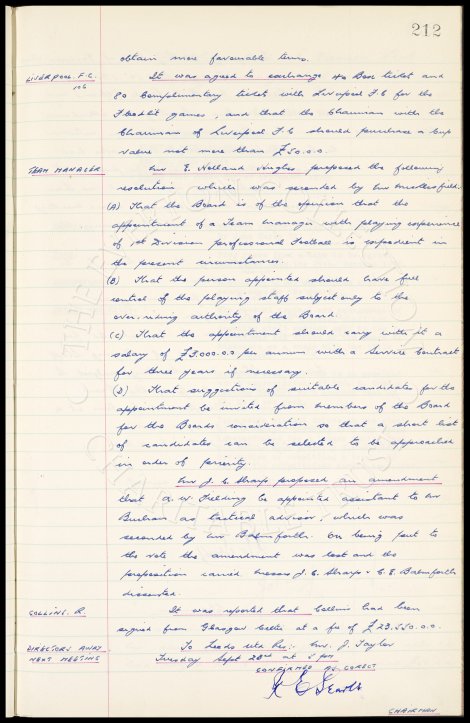 212
obtain more favourable terms.
LIVERPOOL. F.C. It was agreed to exchange 40 Box tickets and
106 80 Complimentary tickets with Liverpool F.C for the
Floodlit games, and that the Chairman with the
Chairman of Liverpool F.C should purchase a Cup
value not more than £50.0.0.
TEAM MANAGER. Mr E. Holland Hughes proposed the following
resolution which was seconded by Mr
(A) That the Board is of the opinion that the
appointment of a Team Manager with playing experience
of 1st Division professional Football is expedient in
the present circumstances.
(B) That the person appointed should have full
control of the playing staff subject only to the
over-riding authority of the Board.
(C) That the appointment should carry with it a
salary of £3,000.0.0 per annum with a Service Contract
for three years if necessary.
(D) That suggestions of suitable candidates for the
appointment be invited from members of the Board
for the Boards consideration so that a short list
of candidates can be selected to be approached
in order of priority.
Mr J. C. Sharp proposed an amendment
that A. W. Fielding be appointed assistant to Mr
Buchan as tactical advisor, which was
seconded by Mr Balmforth. On being put to
the vote the amendment was lost and the
proposition carried. Messrs J. C. Sharp & C. E. Balmforth
dissented.
COLLINS. R. It was reported that Collins had been
signed from Glasgow Celtic at a fee of £23,550.0.0.
DIRECTORS AWAY To Leeds Utd Res:- Mr. J. Taylor
NEXT MEETING Tuesday Sept 23rd at 5 pm
CONFIRMED AS CORRECT
CHAIRMAN